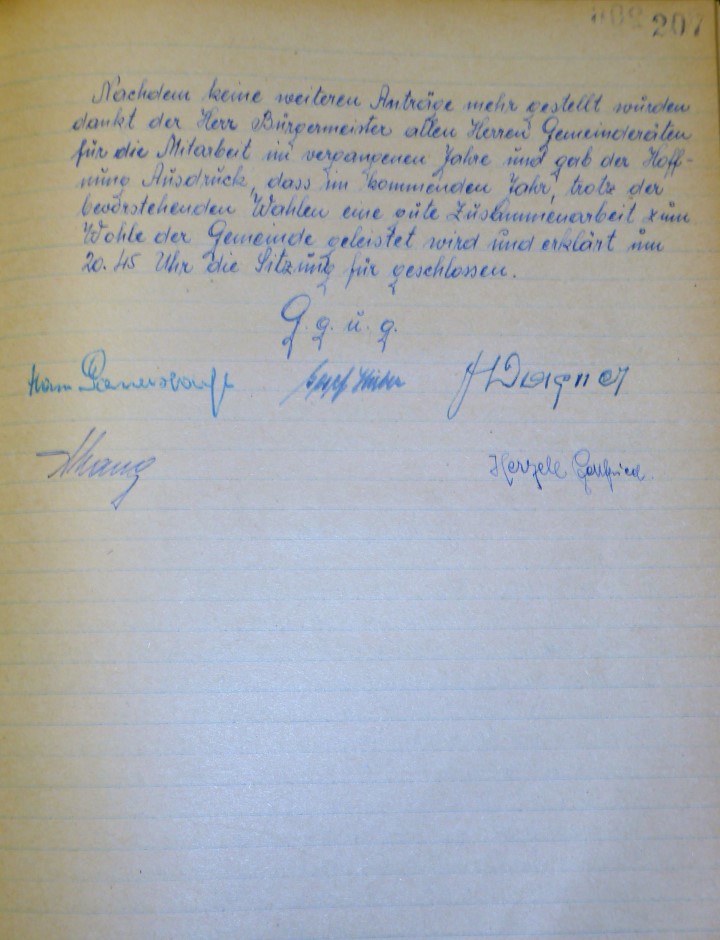 207
Nachdem keine weiteren Anträge mehr gestellt wurden
dankt der Herr Bürgermeister allen Herren Gemeinderäten
für die Mitarbeit im vergangenen Jahre und gab der Hoff-
nung Ausdruck, dass im kommenden Jahr, trotz der
bevorstehenden Wahlen eine gute Zusammenarbeit zum
Wohle der Gemeinde geleistet wird und erklärt um
20.45 Uhr die Sitzung für geschlossen.
G. g. u. g.
Josef Huber
Gottfried